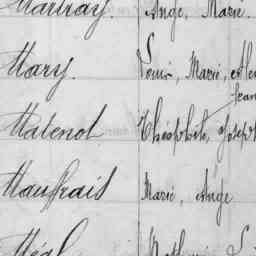 Martray. Ange, Marie.
Mary. Louis, Marie, Ale
Jean
Matenot Théophile, Joseph
Maufrais Marie, Ange
Méal Mathurin